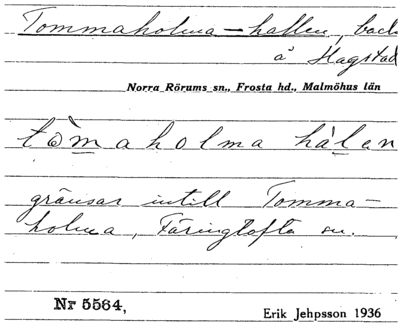 Tommaholma-hallen, back
å Hagstad
Norra Rörums sn., Frosta hd., Malmöhus län
tòmaholma hàlen
gränsar intill Tomma-
holma, Färingtofta sn.
Nr 5564,
Erik Jehpsson 1936